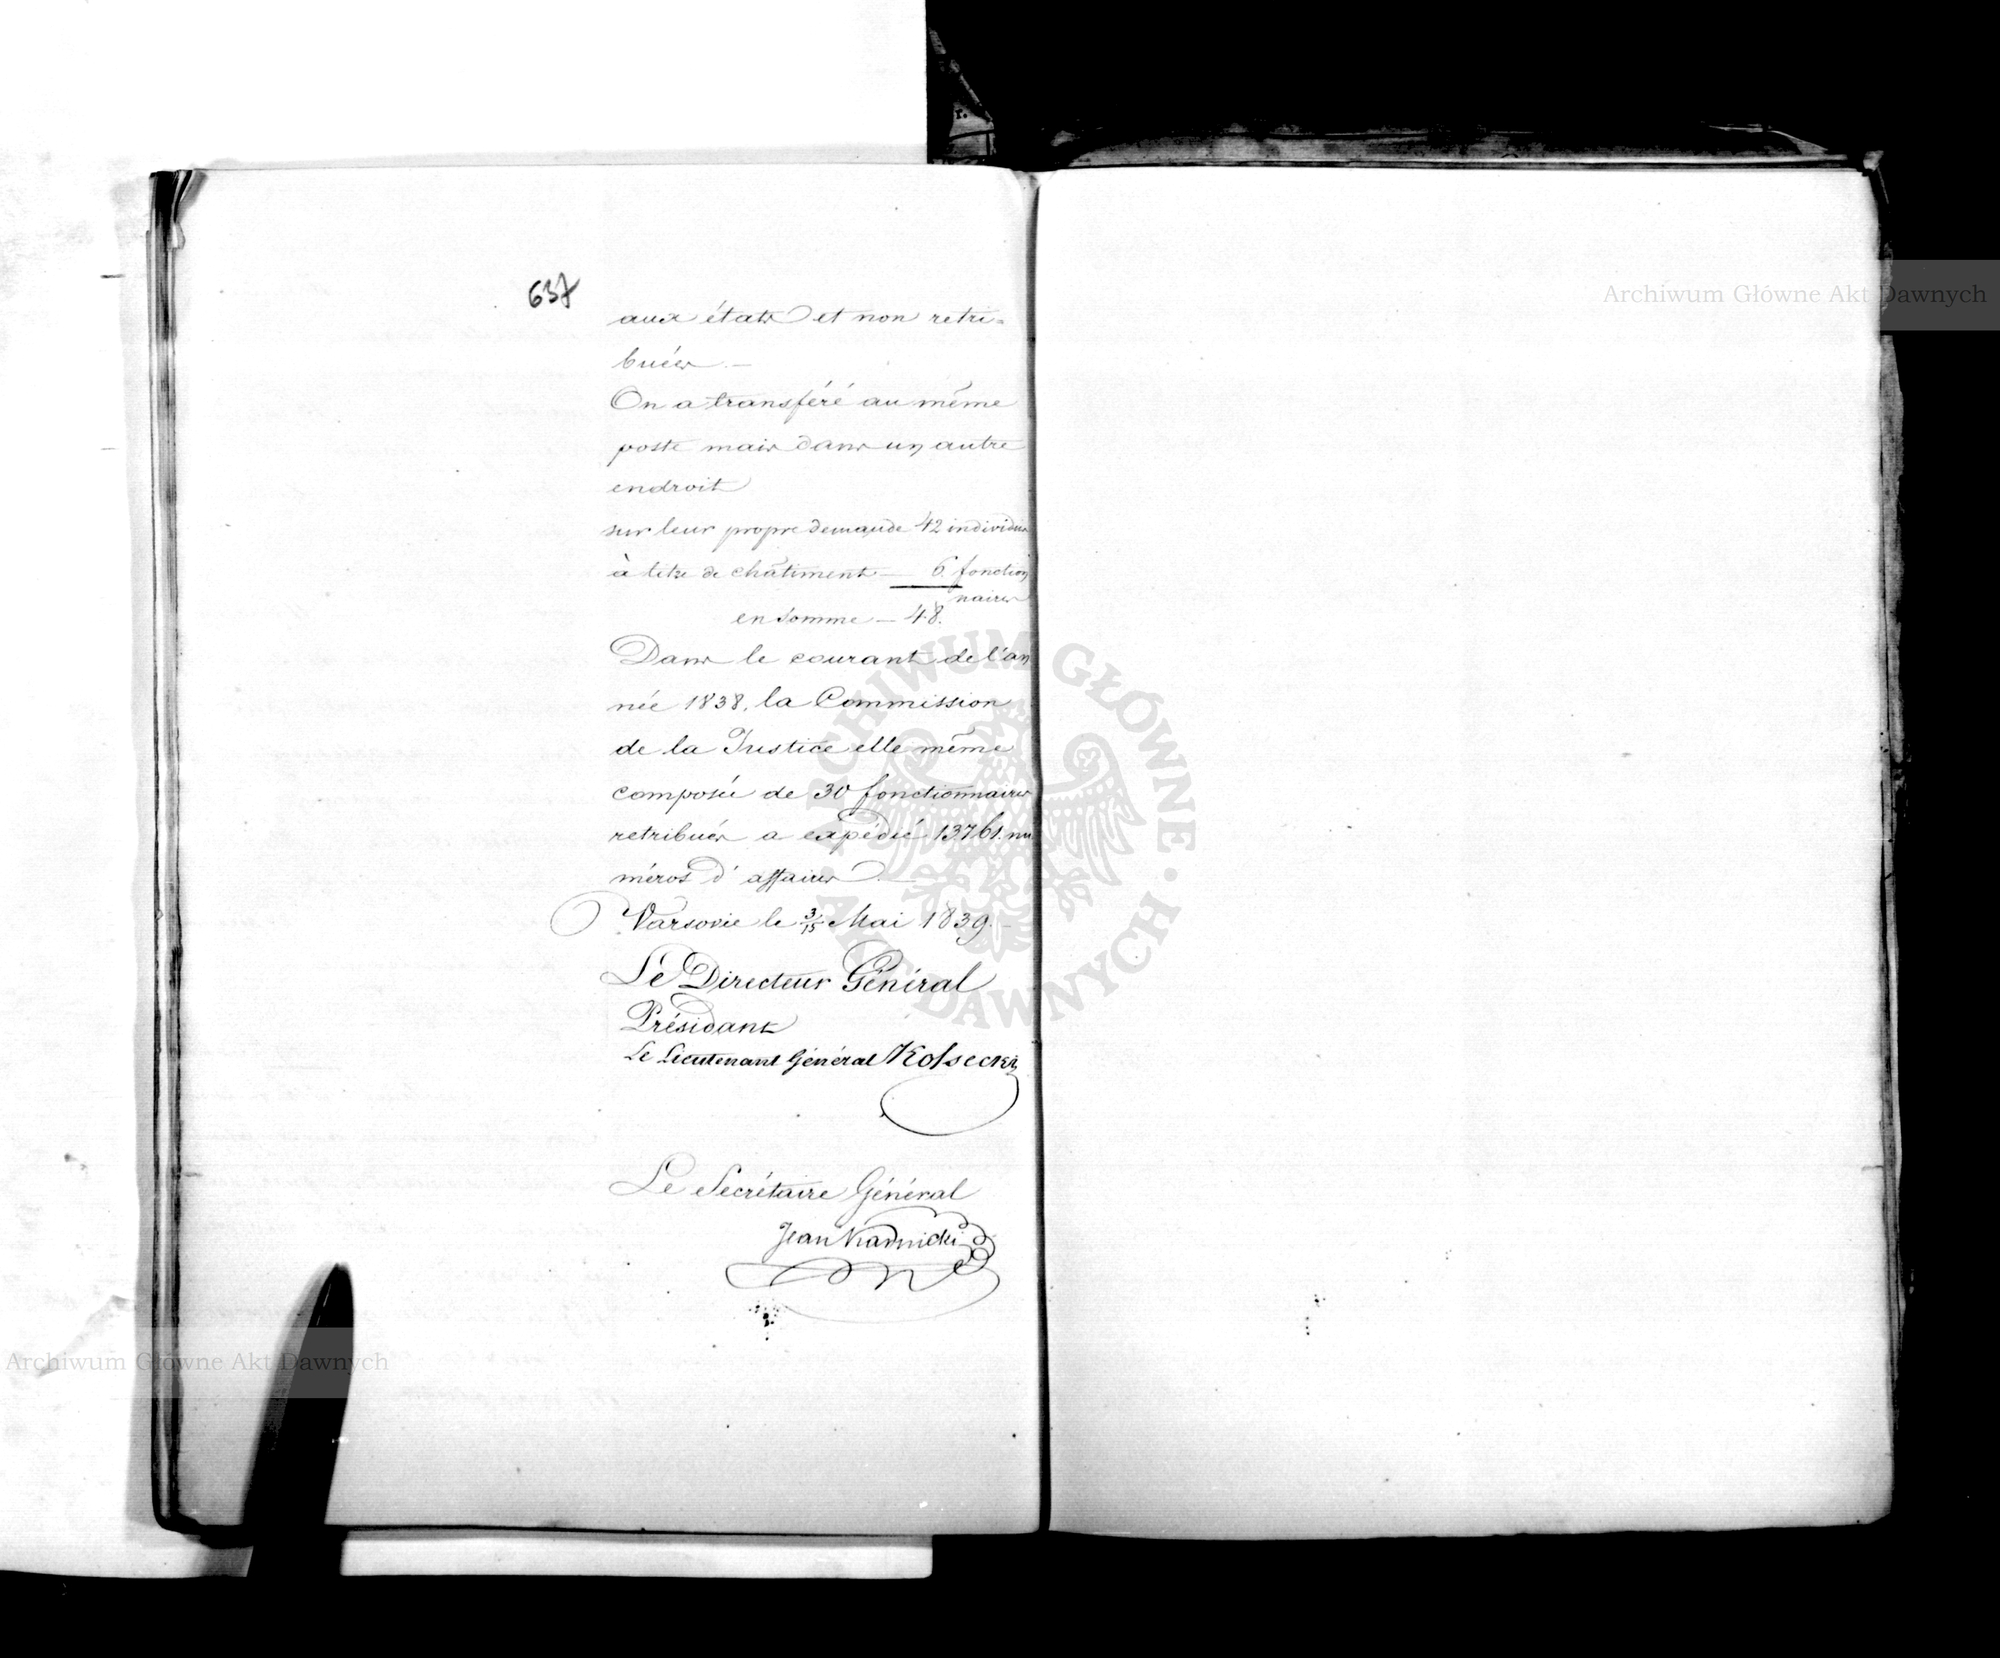 637
aux états et non retri-
bués. —
On a transféré au même
poste mais dans un autre
endroit
sur leur propre demande 42 individus
à titre de châtiment — 6. fonction
naires
en somme — 48.
Dans le courant de l'an
née 1838, la Commission
de la Justice elle même
composée de 30 fonctionnaires
retribués a expédié 13761. nu
méros d'affaires. —
Varsovie le 3/15 Mai 1839. —
Le Directeur Général
Présidant
Le Lieutenant Général
Le Secrétaire Général
Jean
Archiwum Główne Akt Dawnych
Archiwum Główne Akt Dawnych
ARCHIWUM GŁÓWNE AKT DAWNYCH